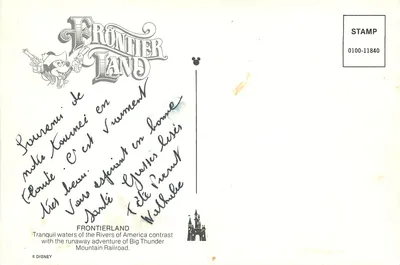 FRONTIER
LAND
STAMP
0100-11840
Souvenir de
notre tournée en
Floride. C'est vraiment
très beau.
Vous espérant en bonne
Santé Grosses bises
Pierrot
Nathalie
FRONTIERLAND
Tranquil waters of the Rivers of America contrast
with the runaway adventure of Big Thunder
Mountain Railroad.
© DISNEY